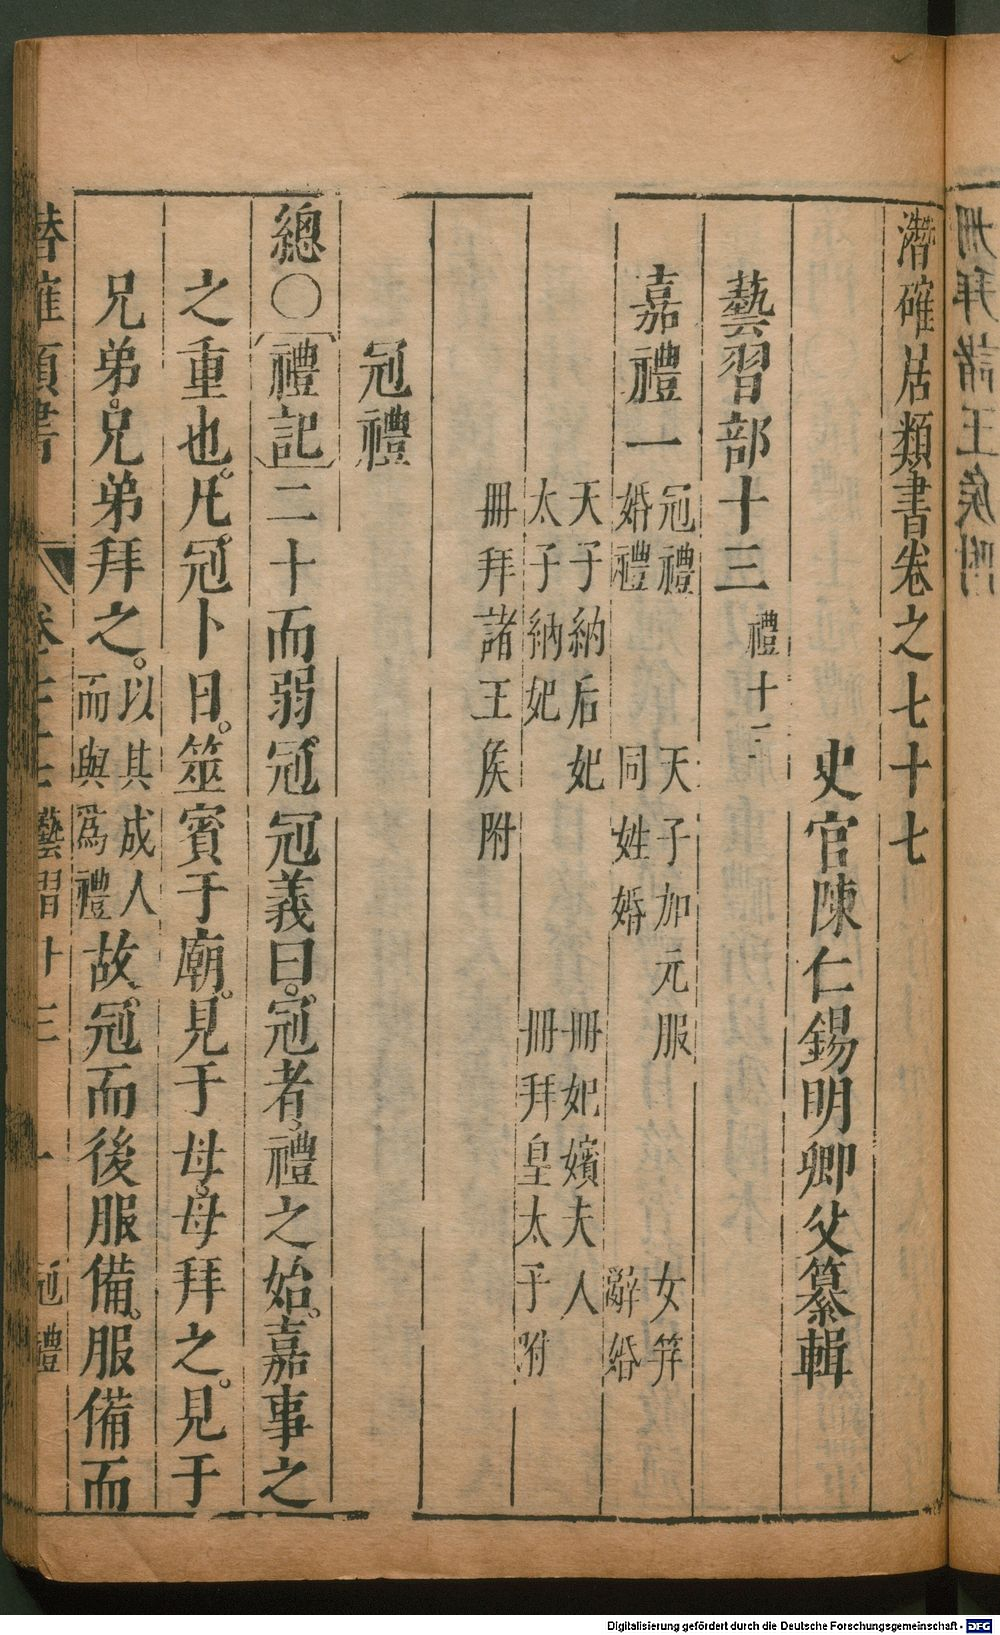 潛確居類書卷之七十七
史官陳仁錫明卿父纂輯
藝習部十三 禮十二
嘉禮一 冠禮 天子加元服 女筓
婚禮 同姓婚 辭婚
天子納后妃 冊妃嬪夫人
太子納妃 冊拜皇太子附
冊拜諸王侯附
冠禮
總○〔禮記〕二十而弱冠。冠義曰。冠者。禮之始。嘉事之
之重也。凡冠卜日。筮賓于廟。見于母。母拜之。見于
兄弟。兄弟拜之。以其成人而與爲禮故冠而後服備。服備而
潛確類書 卷七十七 藝習十三 一 冠禮
冊拜諸王侯附
Digitalisierung gefördert durch die Deutsche Forschungsgemeinschaft - DFG